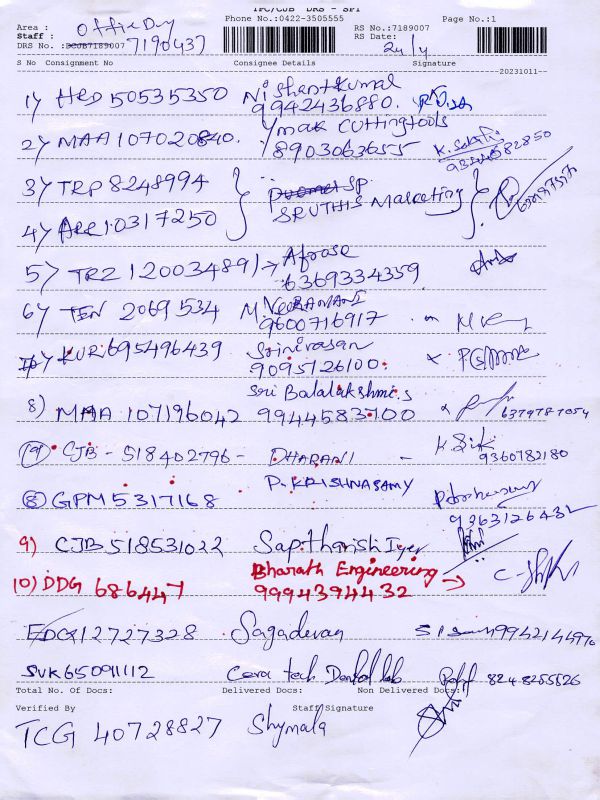 TPC/CJB DRS - SPT
Area : Office Dry Phone No.:0422-3505555 RS No.:7189007 Page No.:1
Staff : RS Date: 24/4
DRS No. : 7190437
S No Consignment No Consignee Details Signature
20231011
1) HRD 50535350 Nishantkumar
9942436880.
2) MAA 107020840. Ymak Cuttingtools
8903063655 K. Sakthi 9344582850
3) TRP 8248994 SP.
SRUTHIS Marketing
4) ARR 10317250
5) TRZ 120034891 → Afrose
6369334359
6) TEN 2069534 M. Veeramani
9600716917
7) KUR 695496439 Srinivasan
9095126100
8) MAA 107196042 Sri Balalakshmi.s
9944583700 6379787054
(9) CJB - 518402796 - DHARANI - K
9360782180
(8) GPM 5317168 P. KRISHNASAMY
9363126432
9) CJB 518531022 Sapthanish Iyer
10) DDG 686447 Bharath Engineering →
9994394432
EDC 12727328 Sagadevan 9942144970
SVK 65091112 Cera tech Dental lab 8248255526
Total No. Of Docs: Delivered Docs: Non Delivered Docs:
Verified By Staff Signature
TCG 40728827 Shymala